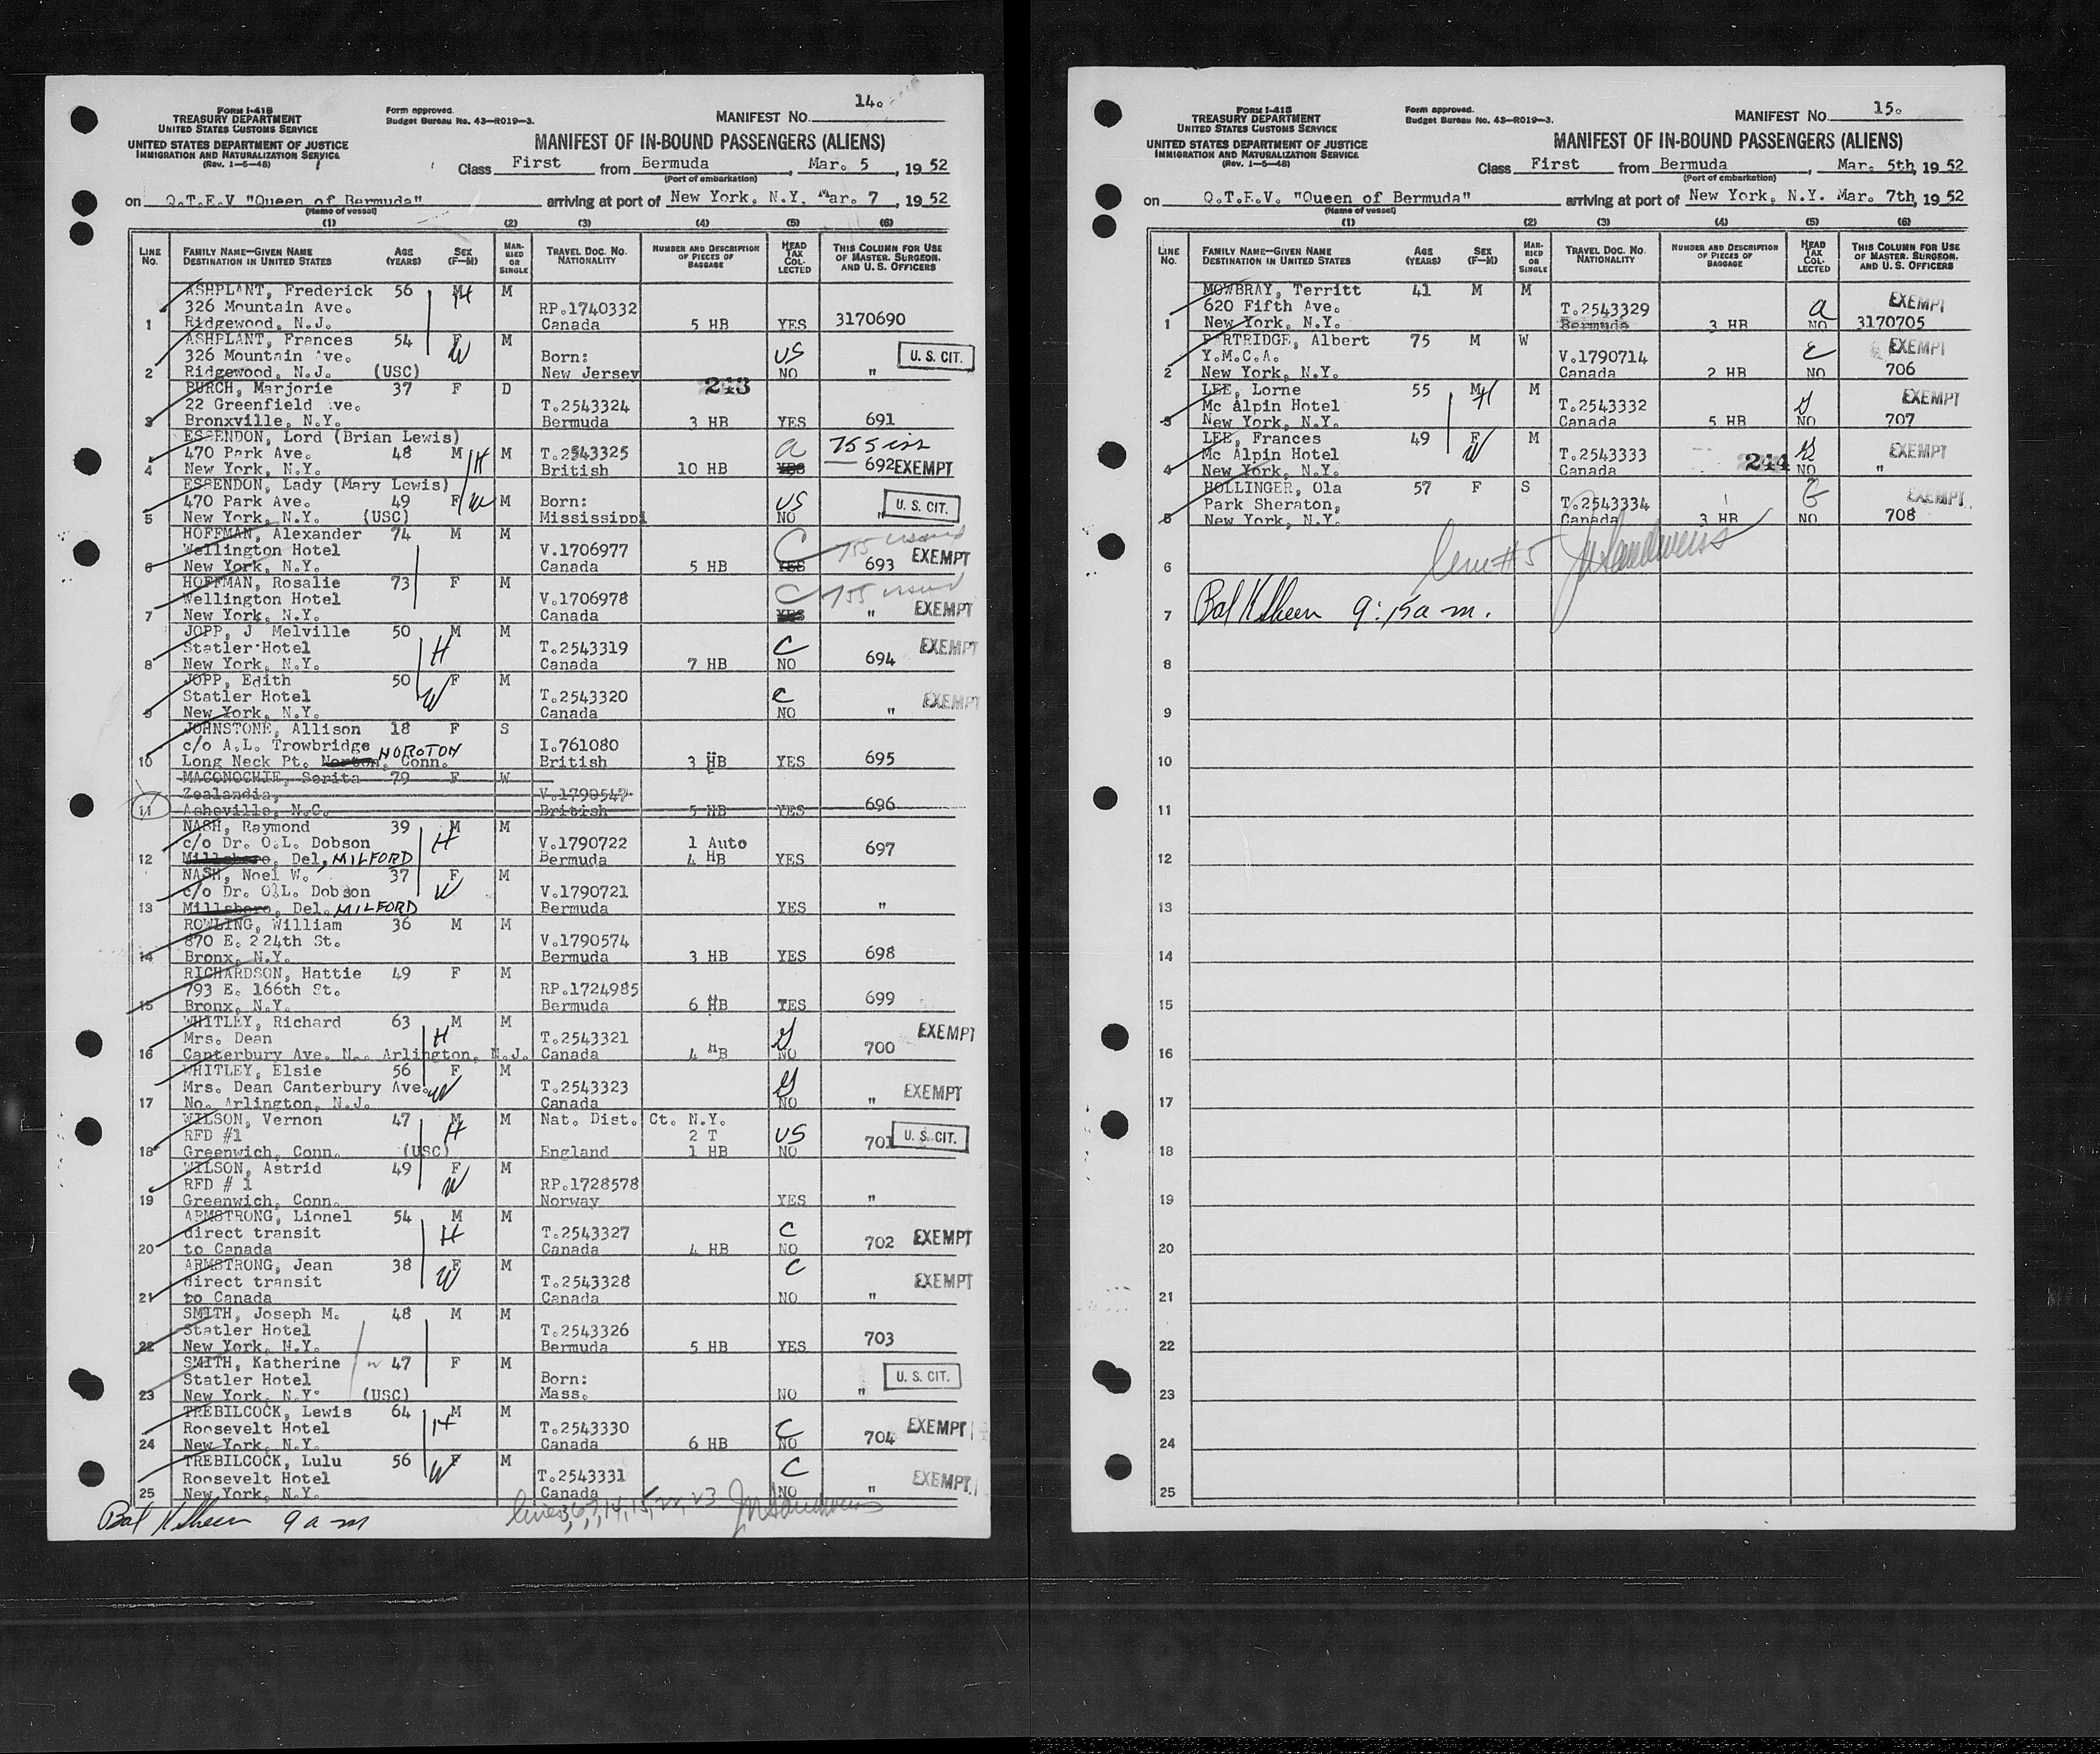 14.
FORM I-418
TREASURY DEPARTMENT
UNITED STATES CUSTOMS SERVICE
UNITED STATES DEPARTMENT OF JUSTICE
IMMIGRATION AND NATURALIZATION SERVICE
(Rev. 1-5-48)
Form approved.
Budget Bureau No. 43-R019-3.
MANIFEST No.
MANIFEST OF IN-BOUND PASSENGERS (ALIENS)
Class First from Bermuda, Mar. 5, 1952
(Port of embarkation)
on Q.T.E.V "Queen of Bermuda" arriving at port of New York, N.Y. Mar. 7, 1952
(Name of vessel)
(1) (2) (3) (4) (5) (6)
LINE No. FAMILY NAME—GIVEN NAME DESTINATION IN UNITED STATES AGE (YEARS) SEX (F—M) MARRIED OR SINGLE TRAVEL DOC. NO. NATIONALITY NUMBER AND DESCRIPTION OF PIECES OF BAGGAGE HEAD TAX COLLECTED THIS COLUMN FOR USE OF MASTER, SURGEON, AND U.S. OFFICERS
ASHPLANT, Frederick 56 M H M
326 Mountain Ave. RP.1740332
1 Ridgewood, N.J. Canada 5 HB YES 3170690
ASHPLANT, Frances 54 F W M
326 Mountain Ave. Born: US U. S. CIT.
2 Ridgewood, N.J. (USC) New Jersey NO "
BURCH, Marjorie 37 F D 243
22 Greenfield Ave. T.2543324
3 Bronxville, N.Y. Bermuda 3 HB YES 691
ESSENDON, Lord (Brian Lewis)
470 Park Ave. 48 M H M T.2543325 a 755 iss
4 New York, N.Y. British 10 HB YES 692 EXEMPT
ESSENDON, Lady (Mary Lewis)
470 Park Ave. 49 F W M Born: US U. S. CIT.
5 New York, N.Y. (USC) Mississippi NO "
HOFFMAN, Alexander 74 M M
Wellington Hotel V.1706977 C 755 issued
6 New York, N.Y. Canada 5 HB YES 693 EXEMPT
HOFFMAN, Rosalie 73 F M
Wellington Hotel V.1706978 C 755 issued
7 New York, N.Y. Canada YES " EXEMPT
JOPP, J Melville 50 M M
Statler Hotel H T.2543319 C EXEMPT
8 New York, N.Y. Canada 7 HB NO 694
JOPP, Edith 50 F M
Statler Hotel W T.2543320 C EXEMPT
9 New York, N.Y. Canada NO "
JOHNSTONE, Allison 18 F S
c/o A.L. Trowbridge NOROTON I.761080
10 Long Neck Pt. Norton, Conn. British 3 HB YES 695
MACONOCHIE, Sorita 79 F W
Zealandia, V.1790547
11 Asheville, N.C. British 5 HB YES 696
NASH, Raymond 39 M M
c/o Dr. O.L. Dobson H V.1790722 1 Auto 697
12 Millsboro, Del, MILFORD Bermuda 4 HB YES
NASH, Noel W. 37 F M
c/o Dr. O.L. Dobson W V.1790721
13 Millsboro, Del. MILFORD Bermuda YES "
ROWLING, William 36 M M
870 E. 224th St. V.1790574
14 Bronx, N.Y. Bermuda 3 HB YES 698
RICHARDSON, Hattie 49 F M
793 E. 166th St. RP.1724985
15 Bronx, N.Y. Bermuda 6 HB YES 699
WHITLEY, Richard 63 M M
Mrs. Dean H T.2543321 EXEMPT
16 Canterbury Ave. N.. Arlington, N.J. Canada 4 HB NO 700
WHITLEY, Elsie 56 F M
Mrs. Dean Canterbury Ave. W T.2543323 EXEMPT
17 No. Arlington, N.J. Canada NO "
WILSON, Vernon 47 M M Nat. Dist. Ct. N.Y.
RFD #1 H 2 T US 701 U. S. CIT.
18 Greenwich, Conn. (USC) England 1 HB NO
WILSON, Astrid 49 F M
RFD # 1 W RP.1728578
19 Greenwich, Conn. Norway YES "
ARMSTRONG, Lionel 54 M M
direct transit H T.2543327 C
20 to Canada Canada 4 HB NO 702 EXEMPT
ARMSTRONG, Jean 38 F M C
direct transit W T.2543328 EXEMPT
21 to Canada Canada NO "
SMITH, Joseph M. 48 M M
Statler Hotel T.2543326
22 New York, N.Y. Bermuda 5 HB YES 703
SMITH, Katherine 47 F M
Statler Hotel Born: U. S. CIT.
23 New York, N.Y. (USC) Mass. NO "
TREBILCOCK, Lewis 64 M M
Roosevelt Hotel H T.2543330 C EXEMPT
24 New York, N.Y. Canada 6 HB NO 704
TREBILCOCK, Lulu 56 F M
Roosevelt Hotel W T.2543331 C EXEMPT
25 New York, N.Y. Canada NO "
9 a m
15.
FORM I-418
TREASURY DEPARTMENT
UNITED STATES CUSTOMS SERVICE
UNITED STATES DEPARTMENT OF JUSTICE
IMMIGRATION AND NATURALIZATION SERVICE
(Rev. 1-5-48)
Form approved.
Budget Bureau No. 43-R019-3.
MANIFEST No.
MANIFEST OF IN-BOUND PASSENGERS (ALIENS)
Class First from Bermuda, Mar. 5th, 1952
(Port of embarkation)
on Q.T.E.V. "Queen of Bermuda" arriving at port of New York, N.Y. Mar. 7th, 1952
(Name of vessel)
(1) (2) (3) (4) (5) (6)
LINE No. FAMILY NAME—GIVEN NAME DESTINATION IN UNITED STATES AGE (YEARS) SEX (F—M) MARRIED OR SINGLE TRAVEL DOC. NO. NATIONALITY NUMBER AND DESCRIPTION OF PIECES OF BAGGAGE HEAD TAX COLLECTED THIS COLUMN FOR USE OF MASTER, SURGEON, AND U.S. OFFICERS
MOWBRAY, Territt 41 M M
620 Fifth Ave. T.2543329 a EXEMPT
1 New York, N.Y. Bermuda 3 HB NO 3170705
PARTRIDGE, Albert 75 M W
Y.M.C.A. V.1790714 C EXEMPT
2 New York, N.Y. Canada 2 HB NO 706
LEE, Lorne 55 M H M
Mc Alpin Hotel T.2543332 EXEMPT
3 New York, N.Y. Canada 5 HB NO 707
LEE, Frances 49 F W M
Mc Alpin Hotel T.2543333 EXEMPT
4 New York, N.Y. Canada 244 NO "
HOLLINGER, Ola 57 F S
Park Sheraton, T.2543334 EXEMPT
5 New York, N.Y. Canada 3 HB NO 708
line #5
6
7 9:15 a m.
8
9
10
11
12
13
14
15
16
17
18
19
20
21
22
23
24
25